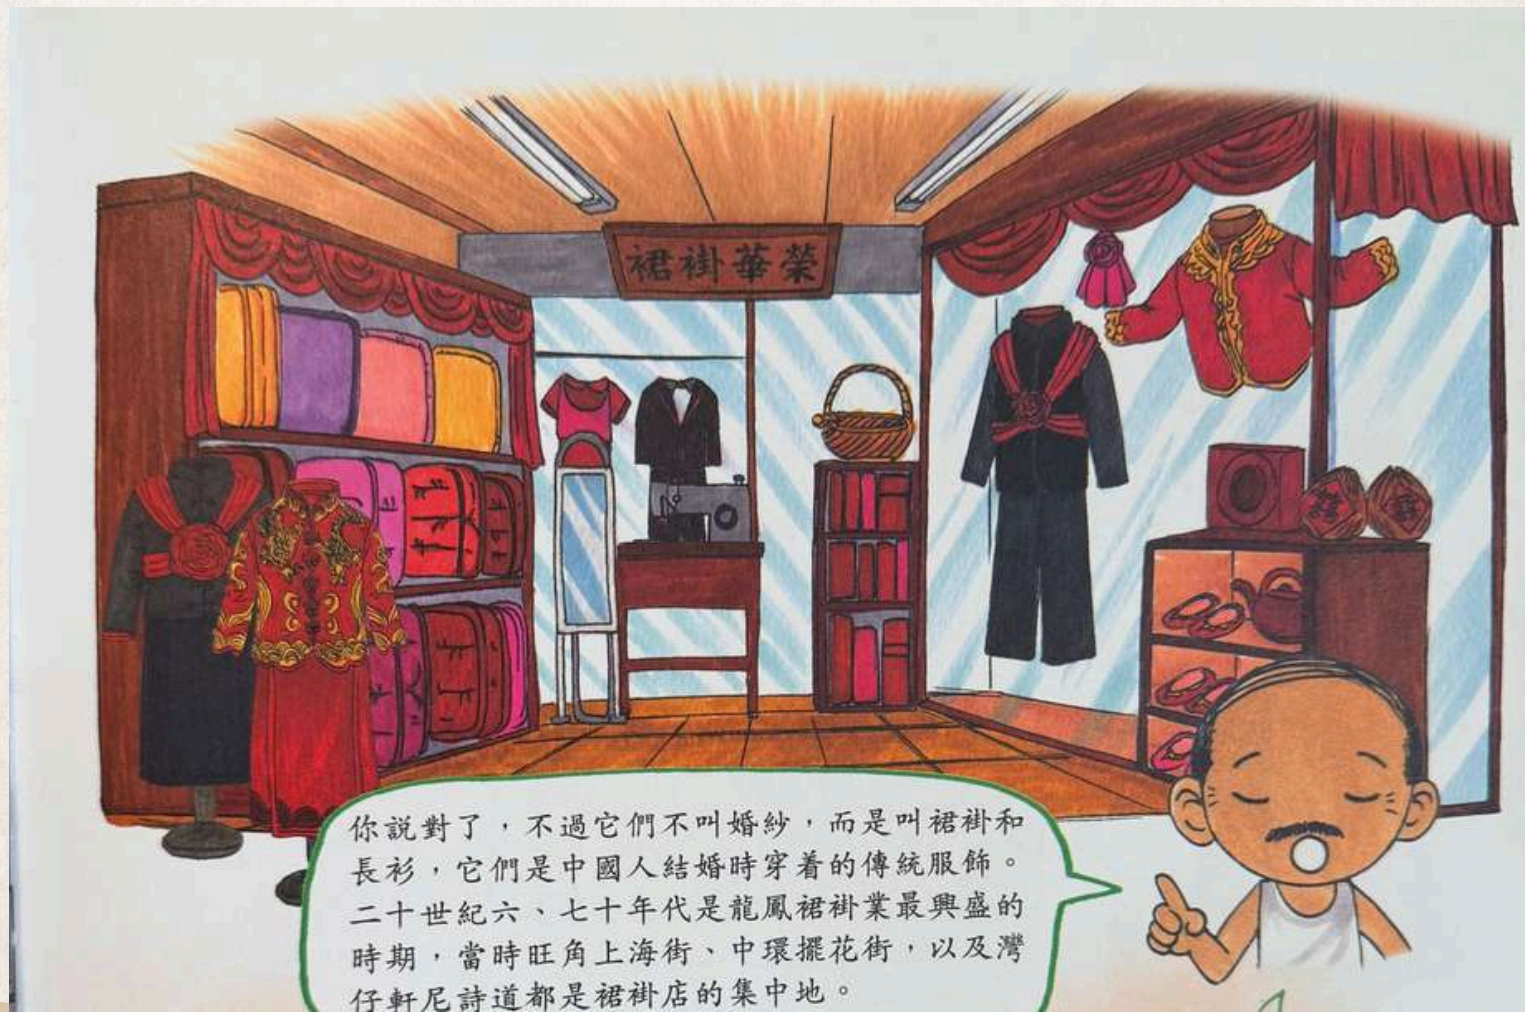 裙褂華榮
你說對了，不過它們不叫婚紗，而是叫裙褂和
長衫，它們是中國人結婚時穿着的傳統服飾。
二十世紀六、七十年代是龍鳳裙褂業最興盛的
時期，當時旺角上海街、中環擺花街，以及灣
仔軒尼詩道都是裙褂店的集中地。